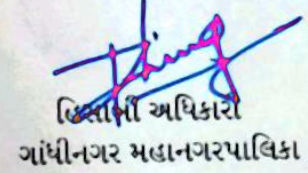 હિસાબી અધિકારી
ગાંધીનગર મહાનગરપાલિકા